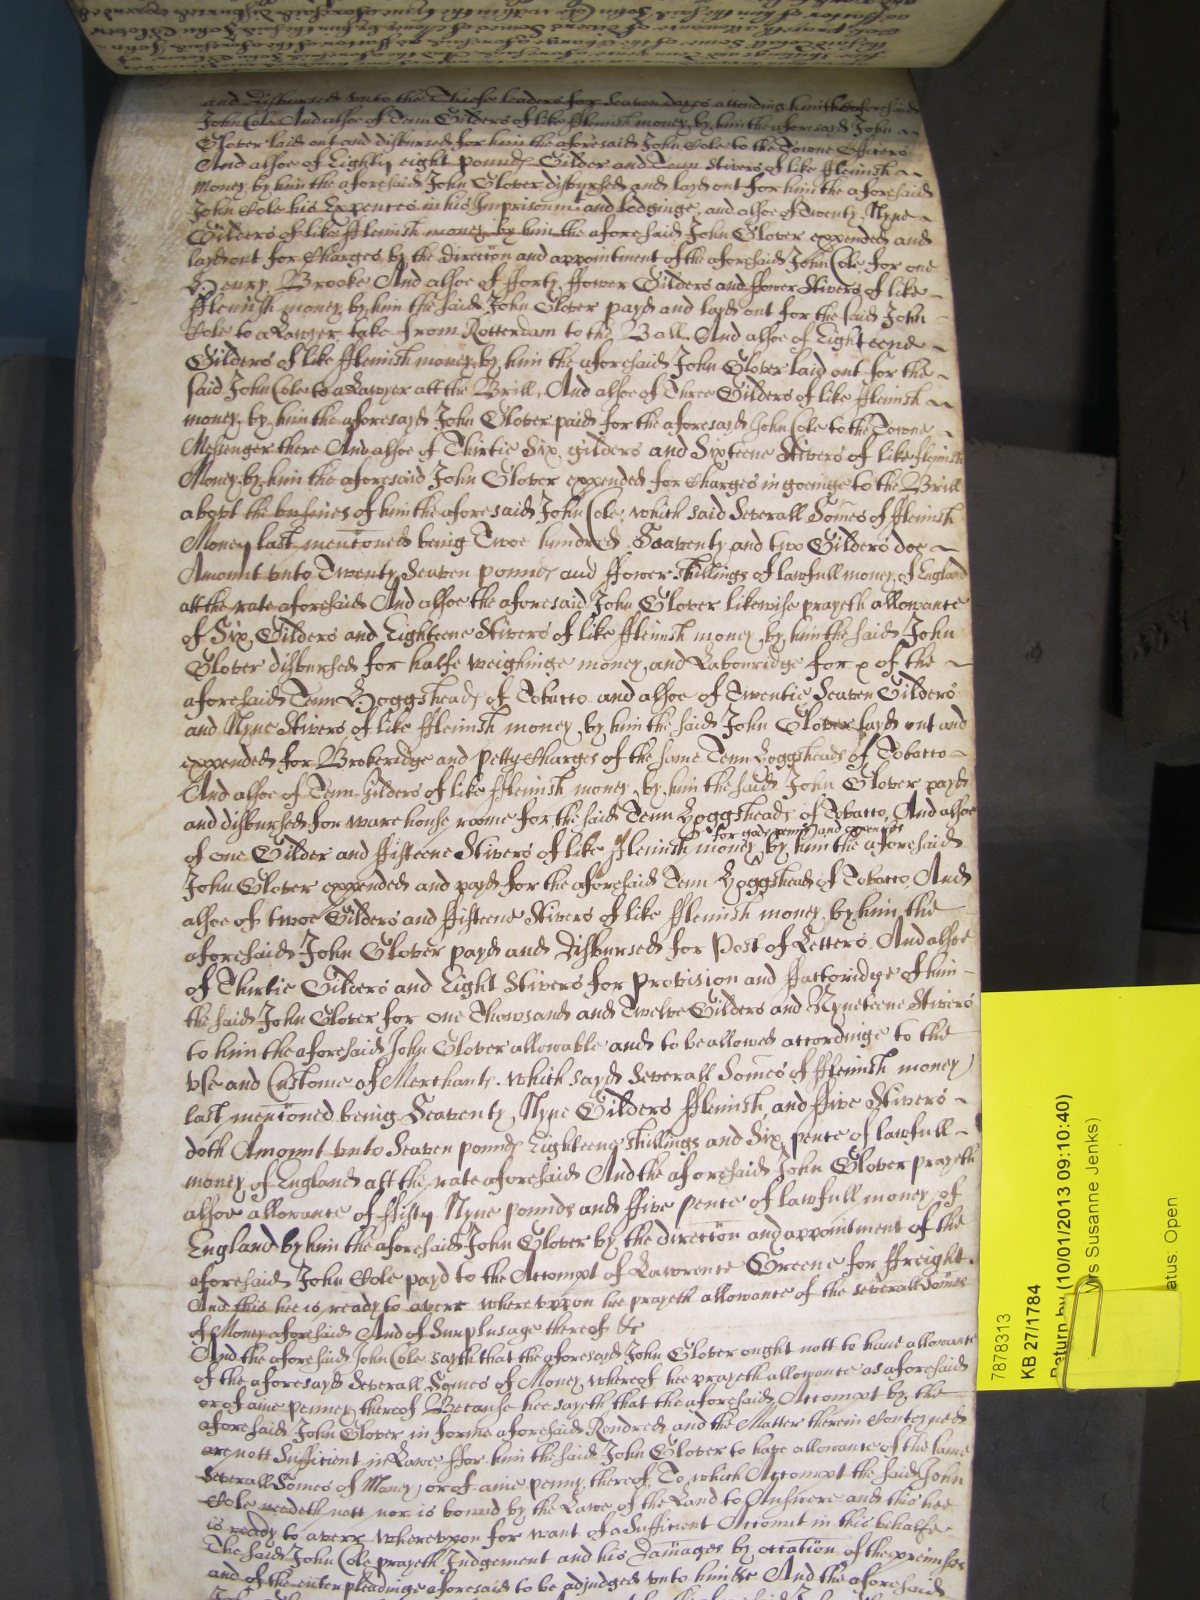 and disbursed vnto the Theise leaders for Seaven dayes attending him the aforesaid
John Cole And alsoe of Tenn Gilders of like fflemish money by him the aforesaid John
Glover laid out and disbursed for him the aforesaid John Cole to the Towne Officers
And alsoe of Eighty eight pounds Gilder and Tenn Stivers of like fflemish
money by him the aforesaid John Glover disbursed and layd out for him the aforesaid
John Cole his Expences in his Imprisonmt and Lodginge, and alsoe of Twenty Nyne
Gilders of like fflemish money by him the aforesaid John Glover expended and
layd out for Charges by the direccon and appointment of the aforesaid John Cole for one
Henry Brooke And alsoe of fforty ffower Gilders and ffower Stivers of like
fflemish money by him the said John Glover payd and layd out for the said John
Cole to a Lawyer take from Rotterdam to the Ball And alsoe of Eighteene
Gilders of like fflemish money by him the aforesaid John Glover laid out for the
said John Cole to a Lawyer att the Brill, And alsoe of Three Gilders of like fflemish
money by him the aforesayd John Glover paid for the aforesayd John Cole to the Towne
Messenger there And alsoe of Thirtie Six gilders and Sixteene Stivers of like fflemish
Money by him the aforesaid John Glover expended for Charges in goeinge to the Brill
about the busines of him the aforesaid John Cole, which said Severall Somes of fflemish
Money last mencioned being Twoe hundred Seaventy and two Gilders doe
Amount vnto Twenty Seaven pounds and ffower shillings of lawfull money of England
att the rate aforesaid And alsoe the aforesaid John Glover likewise prayeth allowance
of Six Gilders and Eighteene Stivers of like fflemish money by him the said John
Glover disbursed for halfe weighinge money and Labouridge for x of the
aforesaid Tenn Hoggsheads of Tobacco and alsoe of Twentie Seaven Gilders
and Nyne Stivers of like fflemish money by him the said John Glover layd out and
expended for Brokeridge and petty Charges of the same Tenn Hoggsheads of Tobacco
And alsoe of Tenn Gilders of like fflemish money by him the said John Glover payd
and disbursed for warehouse roome for the said Tenn Hoggsheads of Tobacco, And alsoe
for gods penny and expences
of one Gilder and ffifteene Stivers of like fflemish money by him the aforesaid
John Glover expended and payd for the aforesaid Tenn Hoggsheads of Tobacco And
alsoe of twoe Gilders and ffifteene Stivers of like fflemish money by him the
aforesaid John Glover payd and disbursed for Post of Letters And alsoe
of Thirtie Gilders and Eight Stivers for provision and ffactoridge of him
the said John Glover for one Thowsand and Twelve Gilders and Nyneteene Stivers
to him the aforesaid John Glover allowable and to be allowed accordinge to the
vse and Custome of Merchants. which sayd Severall Somes of fflemish money
last mencioned being Seaventy Nyne Gilders fflemish and ffive Stivers
doth Amount vnto Seaven pounds Eighteene shillings and Six pence of lawfull
money of England att the rate aforesaid And the aforesaid John Glover prayeth
alsoe allowance of ffifty Nyne pounds and ffive pence of lawfull money of
England by him the aforesaid John Glover by the direccon and appointment of the
aforesaid John Cole payd to the Accompt of Lawrence Greene for ffreight.
And this hee is ready to averr wherevppon hee prayeth allowance of the severall Somes
of Money aforesaid And of Surplusage thereof &c
And the aforesaid John Cole sayth that the aforesayd John Glover ought nott to have allowance
of the aforesayd Severall Somes of Money whereof hee prayeth allowance as aforesaid
or of anie penney thereof Because hee sayeth that the aforesaid Accompt by the
aforesaid John Glover in forme aforesaid Rendred and the Matter therein Conteyned
are nott Sufficient in Lawe ffor him the said John Glover to have allowance of the same
Severall Somes of Money or of anie penny thereof, To which Accompt the said John
Cole needeth nott nor is bound by the Lawe of the Land to Answere and this hee
is ready to averr wherevpon for want of a Sufficient Accomt in this behalfe
The said John Cole prayeth Judgement and his Damages by occacon of the premisses
and of the enterpleadinge aforesaid to be adjudged vnto him &c And the aforesaid
7878313
KB 27/1784
Return by (10/01/2013 09:10:40)
Mrs Susanne Jenks)
atus: Open